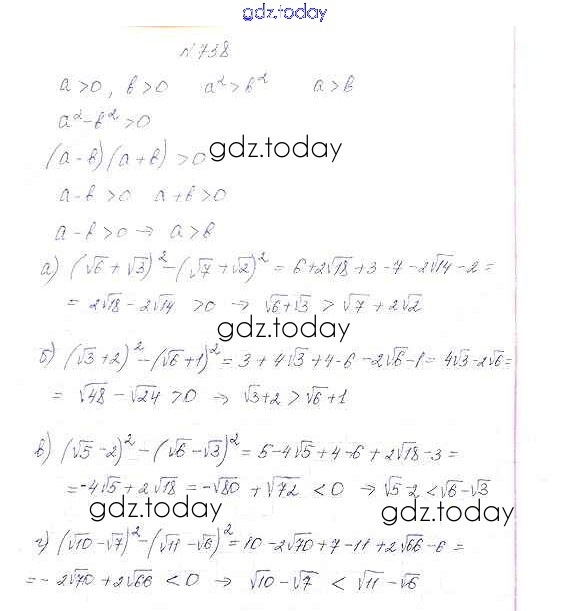 gdz.today
N 738
a>0, b>0 a²>b² a>b
a²-b²>0
(a-b)(a+b)>0
gdz.today
a-b>0 a+b>0
a-b>0 → a>b
а) (√6+√3)²-(√7+√2)²=6+2√18+3-7-2√14-2=
=2√18-2√14>0 → √6+√3>√7+2√2
gdz.today
б) (√3+2)²-(√6+1)²=3+4√3+4-6-2√6-1=4√3-2√6=
=√48-√24>0 → √3+2>√6+1
в) (√5-2)²-(√6-√3)²=5-4√5+4-6+2√18-3=
=-4√5+2√18=-√80+√72<0 → √5-2<√6-√3
gdz.today gdz.today
г) (√10-√7)²-(√11-√6)²=10-2√70+7-11+2√66-6=
=-2√70+2√66<0 → √10-√7<√11-√6